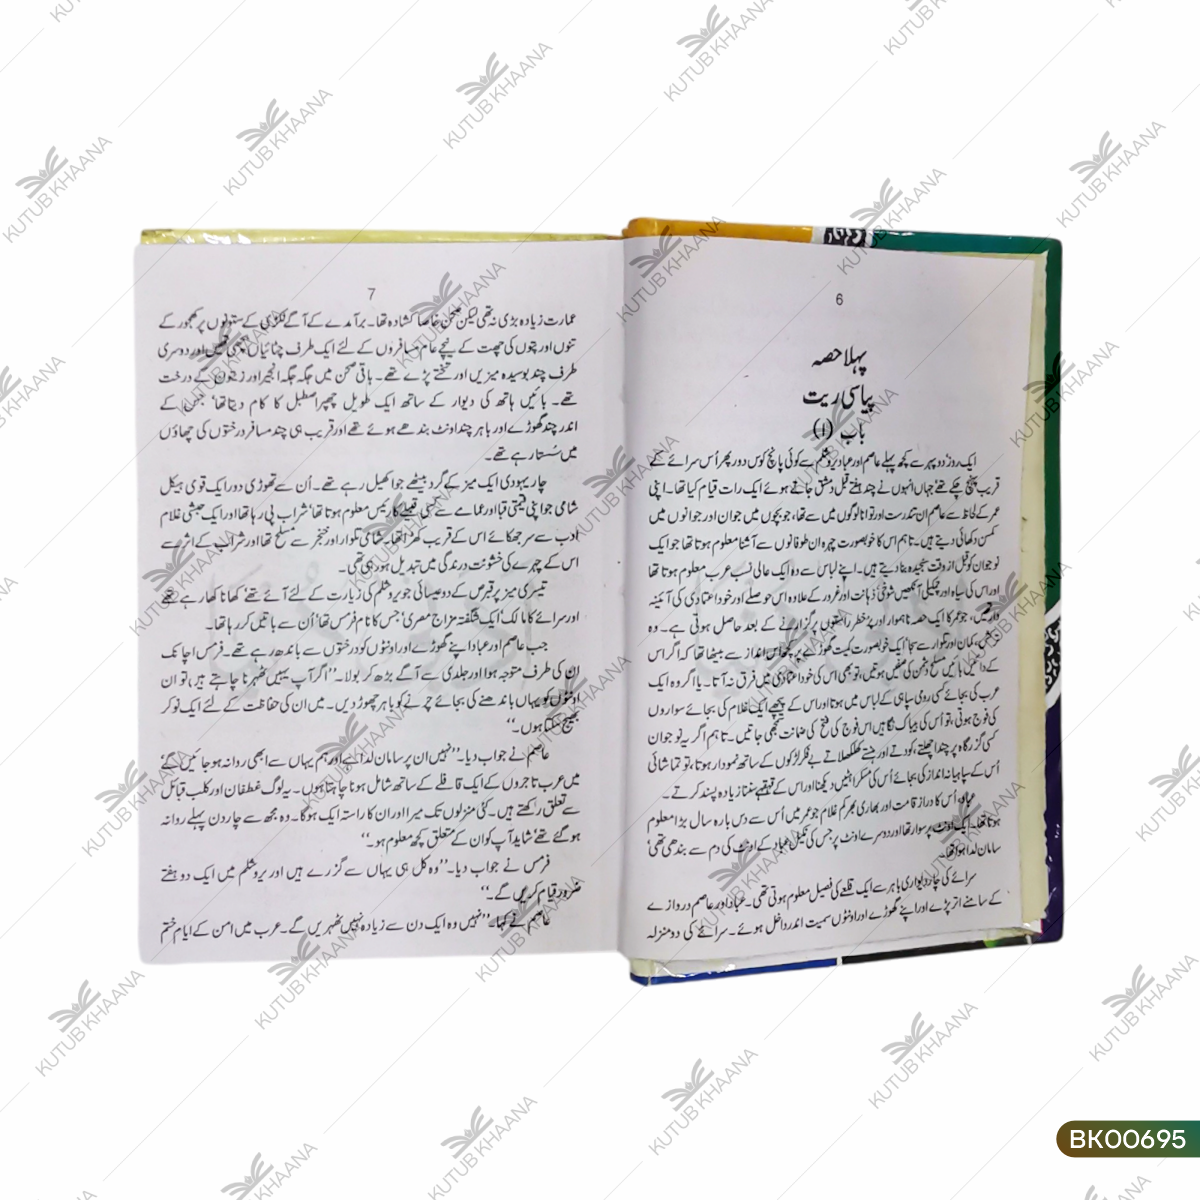 6
پہلا حصہ
پیاسی ریت
باب (۱)
ایک روز دوپہر سے کچھ پہلے عاصم اور عباد یروشلم سے کوئی پانچ کوس دور پھر اُس سرائے کے
قریب پہنچ چکے تھے جہاں انہوں نے چند ہفتے قبل دمشق جاتے ہوئے ایک رات قیام کیا تھا۔ اپنی
عمر کے لحاظ سے عاصم ان تندرست اور توانا لوگوں میں سے تھا، جو بچوں میں جوان اور جوانوں میں
کمسن دکھائی دیتے ہیں۔ تاہم اس کا خوبصورت چہرہ ان طوفانوں سے آشنا معلوم ہوتا تھا جو ایک
نوجوان کو قبل از وقت سنجیدہ بنا دیتے ہیں۔ اپنے لباس سے وہ ایک عالی نسب عرب معلوم ہوتا تھا
اور اس کی سیاہ اور چمکیلی آنکھیں شوخی‘ ذہانت اور غرور کے علاوہ اس حوصلے اور خود اعتمادی کی آئینہ
دار تھیں، جو عمر کا ایک حصہ ناہموار اور پرخطر راستوں پر گزارنے کے بعد حاصل ہوتی ہے۔ وہ
ترکش، کمان اور تلوار سے سجا ایک خوبصورت کمیت گھوڑے پر کچھ اس انداز سے بیٹھا تھا کہ اگر اس
کے دائیں بائیں مسلح دشمن کی صفیں ہوتیں، تو بھی اس کی خود اعتمادی میں فرق نہ آتا۔ یا اگر وہ ایک
عرب کی بجائے کسی رومی سپاہی کے لباس میں ہوتا اور اس کے پیچھے ایک غلام کی بجائے سواروں
کی فوج ہوتی، تو اُس کی بیباک نگاہیں اس فوج کی فتح کی ضمانت سمجھی جاتیں۔ تاہم اگر یہ نوجوان
کسی گزرگاہ پر چند اچھلتے، کودتے اور ہنستے کھلکھلاتے بے فکر لڑکوں کے ساتھ نمودار ہوتا، تو تماشائی
اُس کے سپاہیانہ انداز کی بجائے اُس کی مسکراہٹیں دیکھنا اور اس کے قہقہے سننا زیادہ پسند کرتے۔
عباد، اُس کا دراز قامت اور بھاری بھرکم غلام جو عمر میں اُس سے دس بارہ سال بڑا معلوم
ہوتا تھا۔ ایک اونٹ پر سوار تھا اور دوسرے اونٹ پر جس کی نکیل عباد کے اونٹ کی دم سے بندھی تھی‘
سامان لدا ہوا تھا۔
سرائے کی چار دیواری باہر سے ایک قلعے کی فصیل معلوم ہوتی تھی۔ عباد اور عاصم دروازے
کے سامنے اتر پڑے اور اپنے گھوڑے اور اونٹوں سمیت اندر داخل ہوئے۔ سرائے کی دو منزلہ
7
عمارت زیادہ بڑی نہ تھی لیکن صحن خاصا کشادہ تھا۔ برآمدے کے آگے لکڑی کے ستونوں پر کھجور کے
تنوں اور پتوں کی چھت کے نیچے عام مسافروں کے لئے ایک طرف چٹائیاں بچھی تھیں اور دوسری
طرف چند بوسیدہ میزیں اور تختے پڑے تھے۔ باقی صحن میں جگہ جگہ انجیر اور زیتون کے درخت
تھے۔ بائیں ہاتھ کی دیوار کے ساتھ ایک طویل چھپر اصطبل کا کام دیتا تھا‘ جس کے
اندر چند گھوڑے اور باہر چند اونٹ بندھے ہوئے تھے اور قریب ہی چند مسافر درختوں کی چھاؤں
میں سُستا رہے تھے۔
چار یہودی ایک میز کے گرد بیٹھے جوا کھیل رہے تھے۔ اُن سے تھوڑی دور ایک قوی ہیکل
شامی جو اپنی قیمتی قبا اور عمامے سے کسی قبیلے کا رئیس معلوم ہوتا تھا‘ شراب پی رہا تھا اور ایک حبشی غلام
ادب سے سر جھکائے اس کے قریب کھڑا تھا۔ شامی تلوار اور خنجر سے مسلح تھا اور شراب کے اثر سے
اس کے چہرے کی خشونت درندگی میں تبدیل ہو رہی تھی۔
تیسری میز پر قبرص کے دو عیسائی جو یروشلم کی زیارت کے لئے آئے تھے‘ کھانا کھا رہے تھے
اور سرائے کا مالک‘ ایک شگفتہ مزاج مصری‘ جس کا نام فرمس تھا‘ اُن سے باتیں کر رہا تھا۔
جب عاصم اور عباد اپنے گھوڑے اور اونٹوں کو درختوں سے باندھ رہے تھے۔ فرمس اچانک
ان کی طرف متوجہ ہوا اور جلدی سے آگے بڑھ کر بولا۔ ’’اگر آپ یہیں ٹھہرنا چاہتے ہیں‘ تو ان
اونٹوں کو یہاں باندھنے کی بجائے چرنے کو باہر چھوڑ دیں۔ میں ان کی حفاظت کے لئے ایک نوکر
بھیج سکتا ہوں۔‘‘
عاصم نے جواب دیا۔ ’’نہیں ان پر سامان لدا ہے اور ہم یہاں سے ابھی روانہ ہو جائیں گے
میں عرب تاجروں کے ایک قافلے کے ساتھ شامل ہونا چاہتا ہوں۔ یہ لوگ غطفان اور کلب قبائل
سے تعلق رکھتے ہیں۔ کئی منزلوں تک میرا اور ان کا راستہ ایک ہوگا۔ وہ مجھ سے چار دن پہلے روانہ
ہو گئے تھے‘ شاید آپ کو ان کے متعلق کچھ معلوم ہو۔‘‘
فرمس نے جواب دیا۔ ’’وہ کل ہی یہاں سے گزرے ہیں اور یروشلم میں ایک دو ہفتے
ضرور قیام کریں گے۔‘‘
عاصم نے کہا۔ ’’نہیں وہ ایک دن سے زیادہ نہیں ٹھہریں گے۔ عرب میں امن کے ایام ختم
KUTUB KHAANA
BK00695